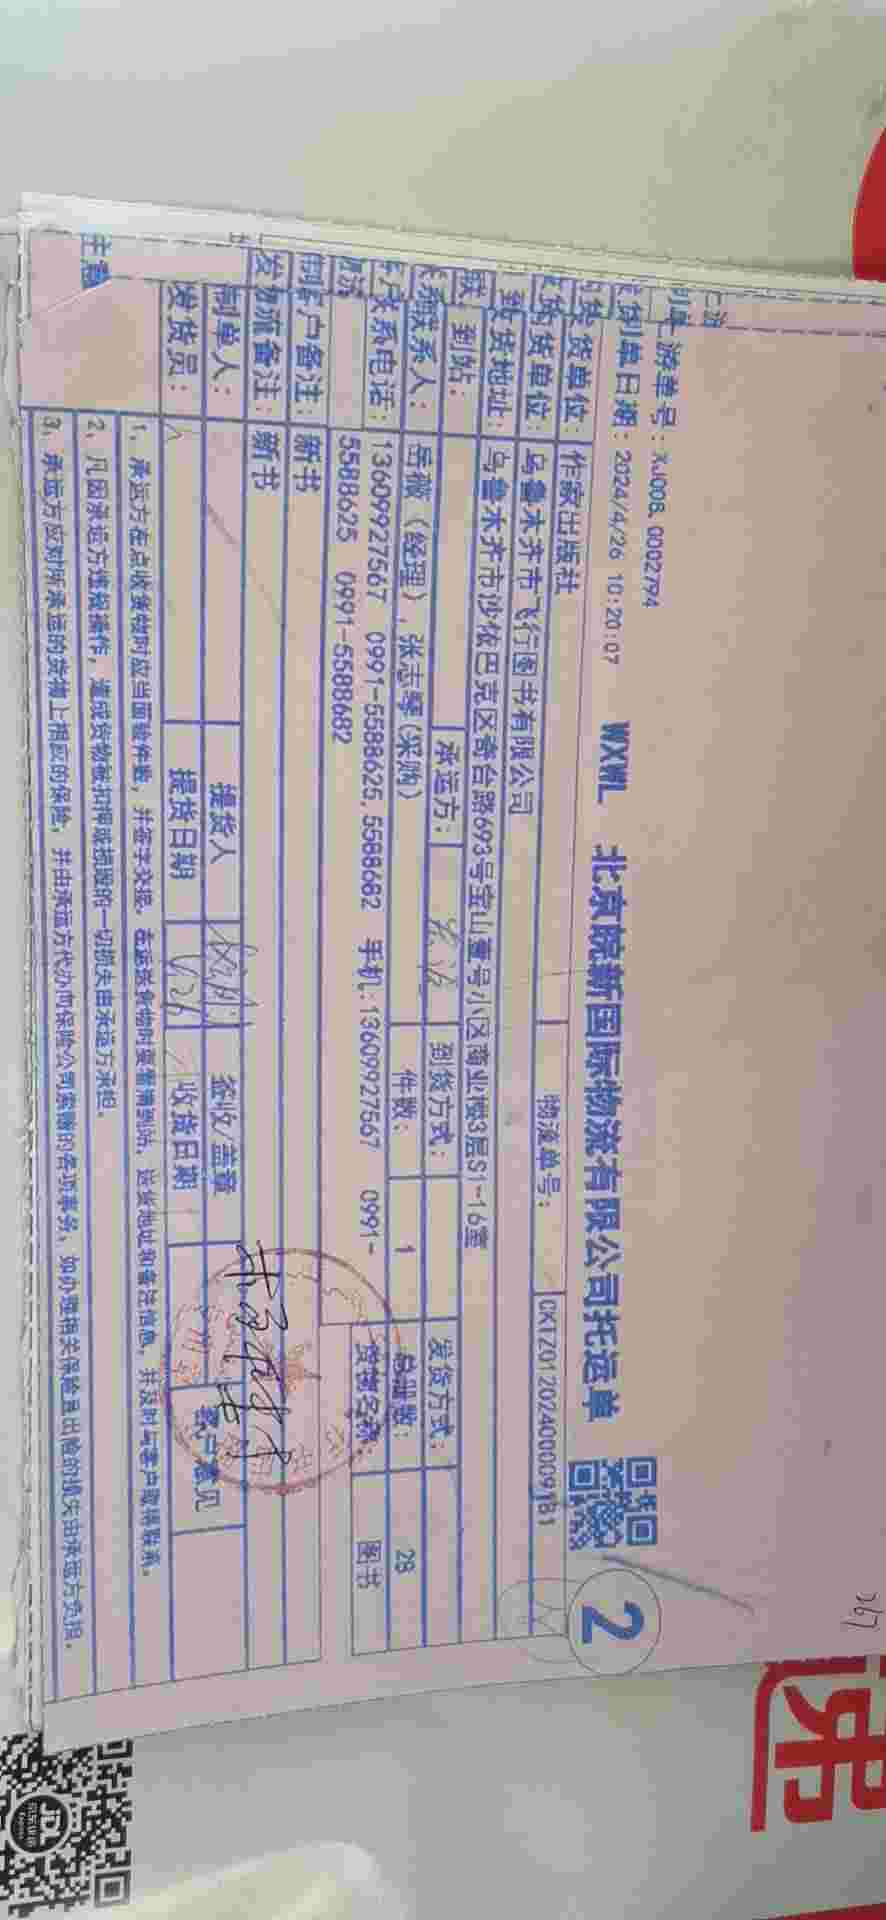 游单号：XJ00B, G002794
制单日期：2024/4/26 10:20:07
WXWL 北京皖新国际物流有限公司托运单
2
货单位：作家出版社
物流单号：CKTZ01202400009181
货单位：乌鲁木齐市飞行图书有限公司
货地址：乌鲁木齐市沙依巴克区奇台路693号宝山壹号小区商业楼3层S1-16室
到站：
承运方：
到货方式：
发货方式：
联系人：岳薇（经理），张志琴(采购)
件数：1
总册数：28
联系电话：13609927567 0991-5588625,5588682 手机：13609927567 0991-
5588625 0991-5588682
货物名称：图书
客户备注：新书
物流备注：新书
制单人：
提货人
签收/盖章
客户意见
发货员：
提货日期
收货日期
注意
1、承运方在点收货物时应当面验件数，并签字交接。在运送货物时要看清到站、送货地址和备注信息，并及时与客户取得联系。
2、凡因承运方违规操作，造成货物被扣押或损毁的一切损失由承运方承担。
3、承运方应对所承运的货物上相应的保险，并由承运方代办向保险公司索赔的各项事务，如办理相关保险且出险的损失由承运方负担。